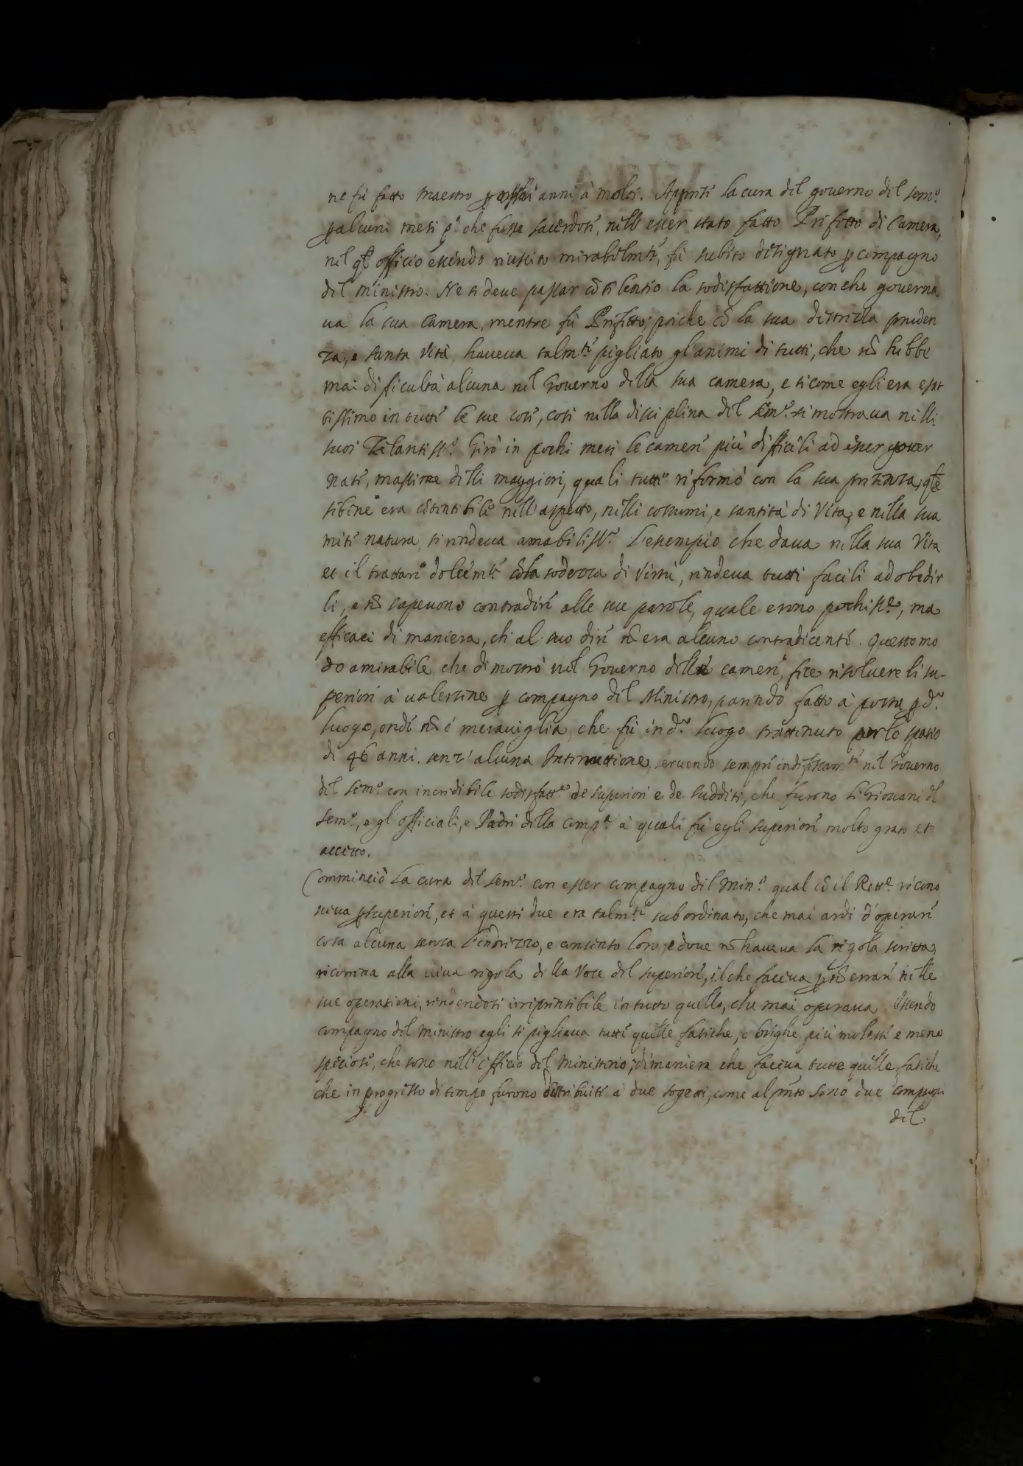 ne fù fatto Maestro p anni à molti. la cura del governo del sem.º
palcuni mesi p.ª che fusse sacerdote, nell'esser stato fatto Prefetto di Camera,
nel qle officio essendo riuscito mirabilmte, fù subito designato p compagno
del ministro. Ne si deve passar cō silentio la sodisfattione, con che governa
ua la sua Camera, mentre fù Prefetto; poiche cō la sua destrezza pruden
za, e santa vita, haueua talmte pigliato gl'animi di tutti, che nō hebbe
mai dificultà alcuna nel Governo della sua camera, e sicome egli era esat
tissimo in tutte le sue cose, cosi nella disciplina del sem.º si mostraua nelli
suoi Zelantiss.º Girò in pochi mesi le camere più difficili ad esser gover
nate, massime delli maggiori, quali tutte riformò con la sua presenza, qle
sibene era nell'aspetto, nelli costumi, e santità di Vita, e nella sua
mite natura si rendeua amabiliss.º L'essempio che daua nella sua Vita
et il trattare dolcemte cō la sodezza di virtù, rendeua tutti facili ad obedir
li, e nō sapeuono contradire alle sue parole, quale erono pochiss.e, ma
efficaci di maniera, ch'al suo dire nō era alcuno contradicente. Questo mo
do amirabile che dimostrò nel Governo delle camere, fece risoluere li su-
periori à ualersine p compagno del Ministro, parendo fatto à posta p d.º
luogo, onde nō è merauiglia, che fù in d.º luogo trattenuto per lo spatio
di 46 anni. senz'alcuna Interruttione, seruendo sempre indefessamte nel Governo
del sem.º con incredibile sodisfatt.e de superiori e de sudditi, che furono li Giouani del
sem.º, e gl'officiali, e Padri della comp.ª à quali fù egli superiore molto grato et
accetto.
Comminciò la cura del sem.º con esser compagno del Min.º qual cō il Rett.e ricono
sceua p superiori, et à questi due era talmte subordinato, che mai ardì d'operare
cosa alcuna senza l'indrizzo, e consenso loro, e doue nō haueua la regola scritta,
ricorreua alla viua regola della Voce del superiore, il che faceua p nō errare nelle
sue operationi, rendendosi irriprensibile in tutto quello, che mai operaua. Essendo
compagno del ministro egli si pigliaua tutte quelle fatiche, e brighe più moleste e meno
speciose, che sono nell'officio del Ministrio, dimaniera che faceua tutte quelle fatiche
che in progresso di tempo furono distribuite à due sogetti, come al pnte sono due compagni
del